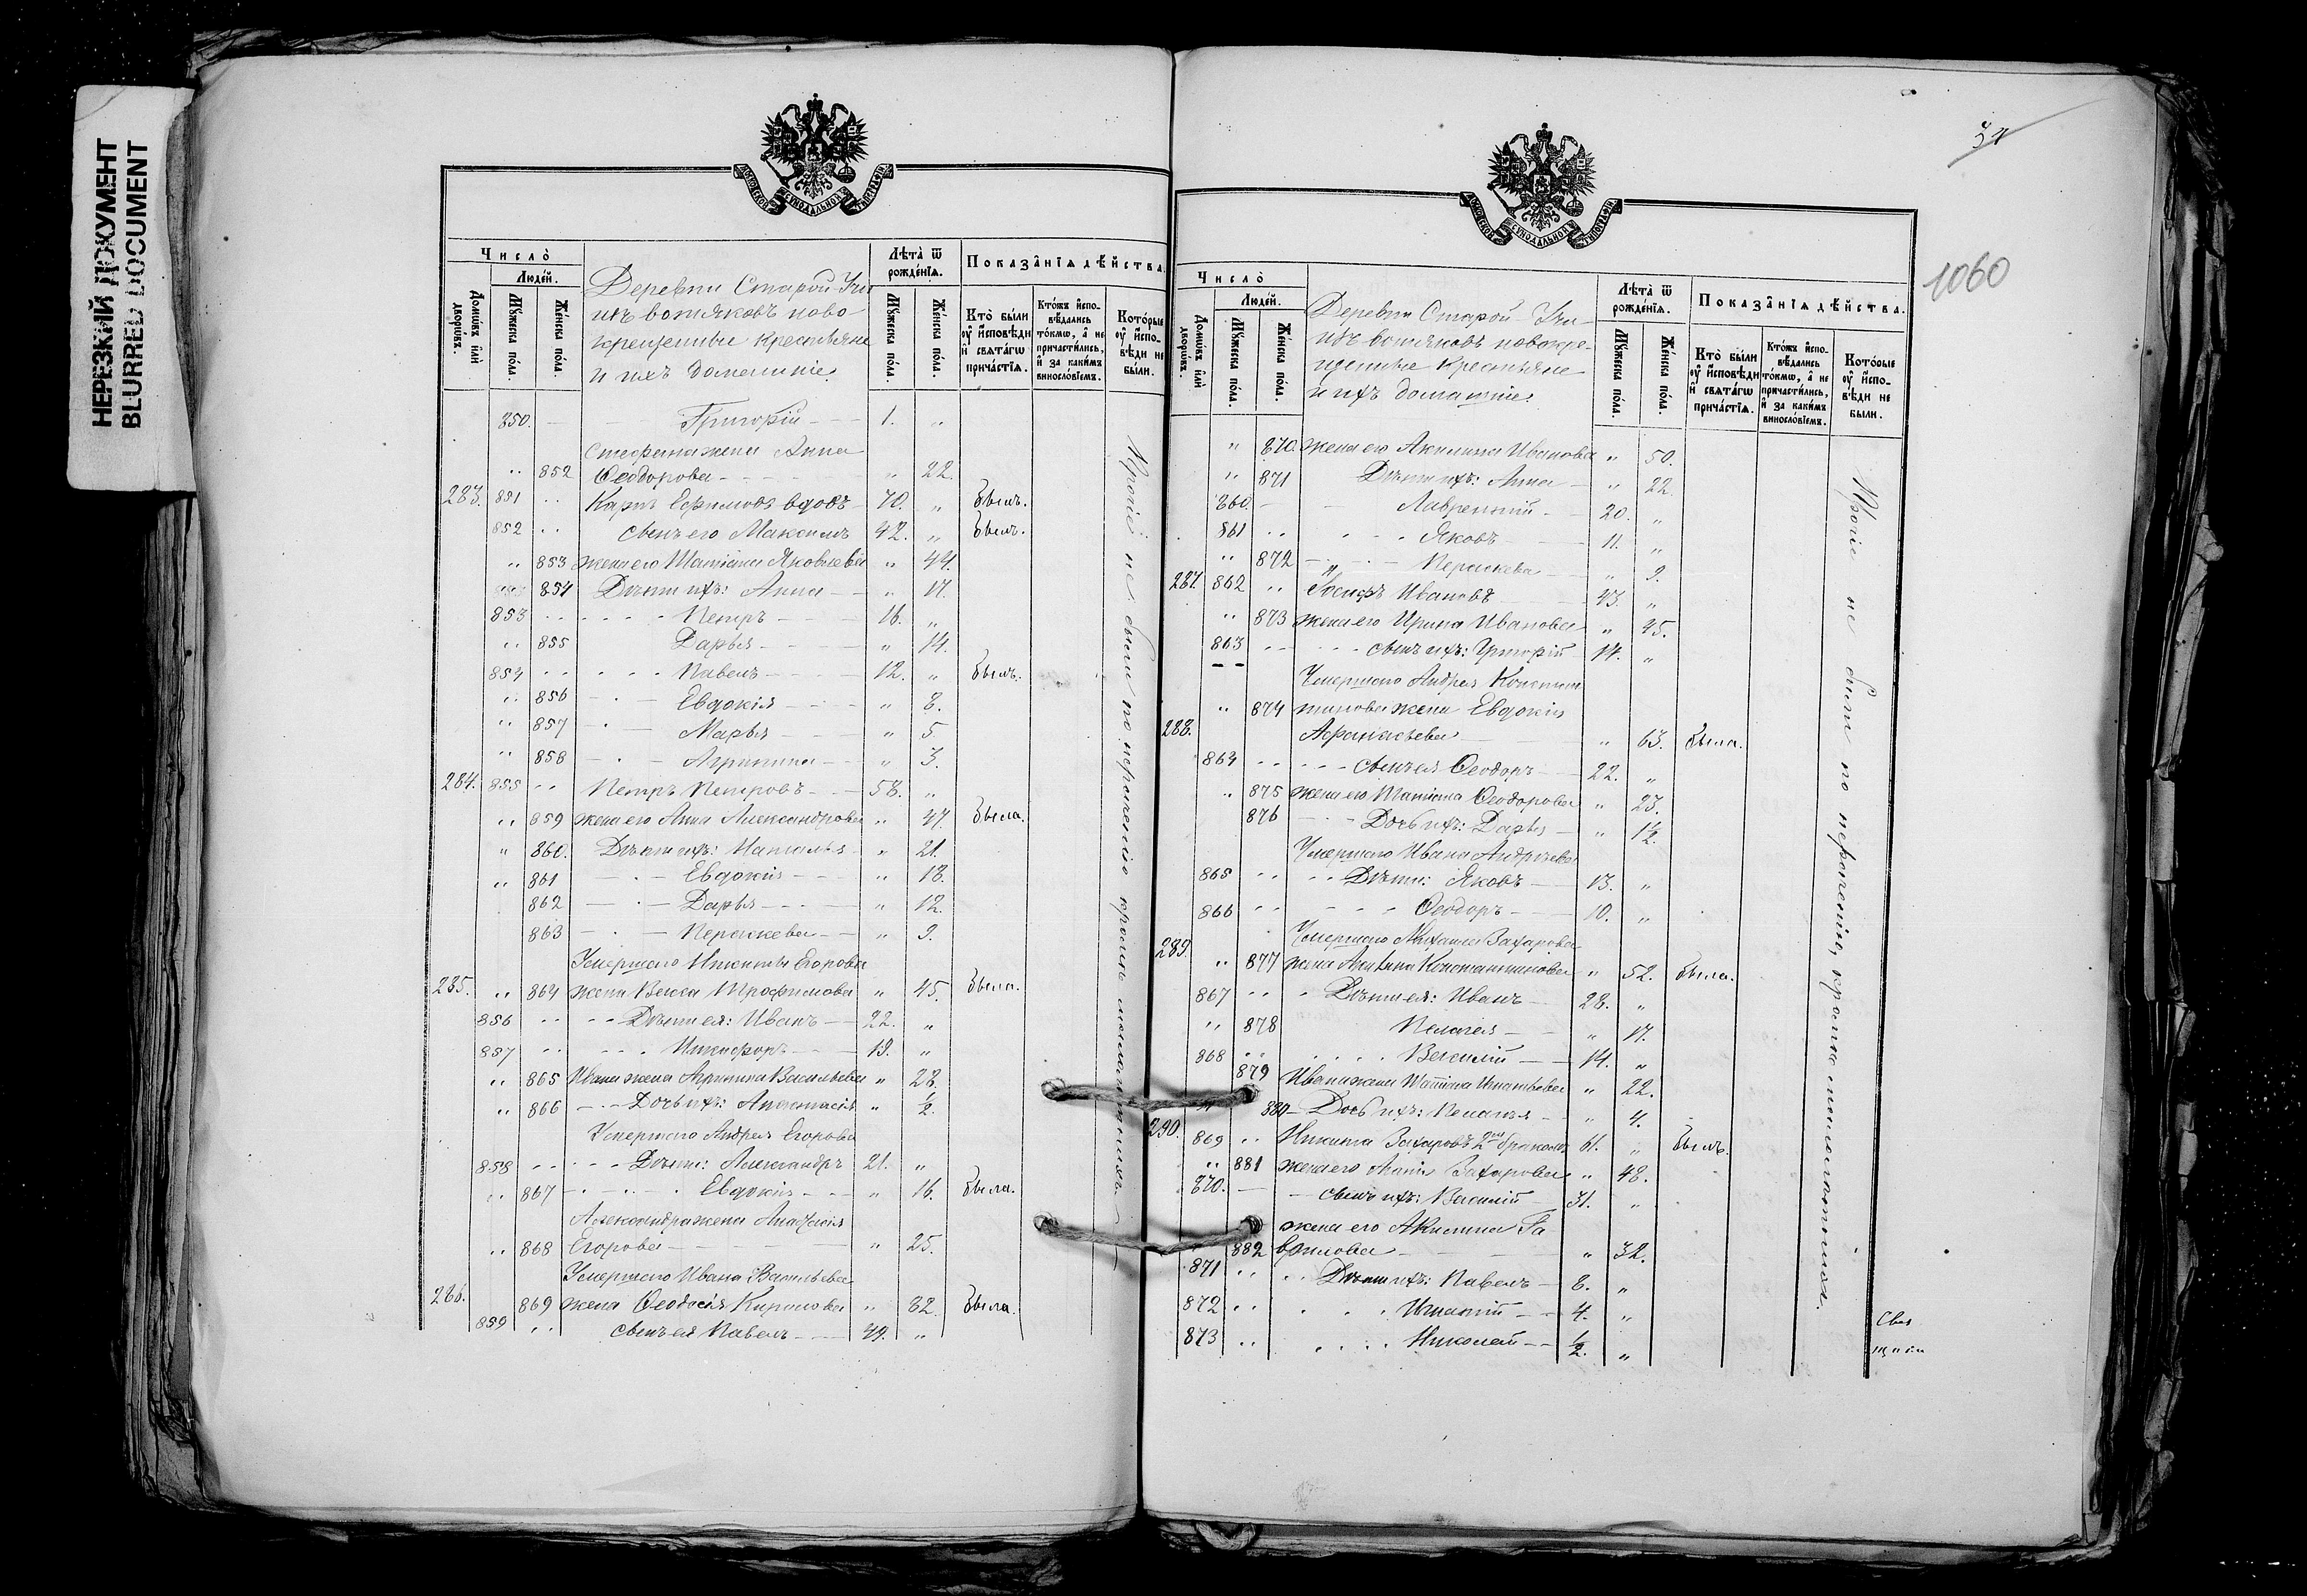 НЕРЕЗКИЙ ДОКУМЕНТ
BLURRED DOCUMENT
МОСКОВСКОЙ СѴНОДАЛЬНОЙ ТИПОГРАФІИ
Число̀
Людей.
Домѡвъ или дворѡвъ.
Мꙋжеска пола.
Женска пола.
Деревни Старой Учи
изъ вотяковъ ново-
крещенные крестьяне
и ихъ домашніе.
Лѣта ѿ рожденїѧ.
Мꙋжеска пола.
Женска пола.
Показанїѧ дѣйства.
Кто были оу исповѣди и свѧтагѡ причастїѧ.
Ктожъ исповѣдались токмѡ, а не причастились, и за какимъ винословїемъ.
Которые оу исповѣди не были.
850. Григорій 1. „
Стефана жена Анна
„ 852 Ѳеодорова „ 22.
283. 851 „ Карпъ Ефимовъ вдовъ 70. „ былъ.
852 „ сынъ его Максимъ 42. „ былъ.
„ 853 жена его Татіана Яковлева „ 44.
854 Дѣти ихъ: Анна „ 17.
853 Петръ 16. „
„ 855 Дарья „ 14.
854 Павелъ 12. „ былъ.
„ 856 Евдокія „ 8.
„ 857 Марья „ 5.
„ 858 Агрипина „ 3.
284. 855 „ Петръ Петровъ 58. „
„ 859 жена его Анна Александрова „ 47. была.
„ 860. Дѣти ихъ: Наталья „ 21.
„ 861 Евдокія „ 18.
862 Дарья „ 12.
863 Параскева „ 9.
Умершаго Никиты Егорова
285. „ 864 жена Васса Трофимова „ 45. была.
856 „ Дѣти ея: Иванъ 22. „
857 „ Никифоръ 19. „
„ 865 Ивана жена Агрипина Васильева „ 28.
„ 866 Дочь ихъ: Анастасія „ ½.
Умершаго Андрея Егорова
858 Дѣти: Александръ 21. „
„ 867 Евдокія „ 16. была.
Александра жена Анастасія
„ 868 Егорова „ 25.
Умершаго Ивана Васильева
286. 869 жена Ѳеодосія Кирилова „ 82. была.
859 „ сынъ ея Павелъ 49. „
Прочіе не были по нераченію кромѣ малолѣтнихъ
1060
Число̀
Людей.
Домѡвъ или дворѡвъ.
Мꙋжеска пола.
Женска пола.
Деревни Старой Учи
изъ вотяковъ новокре-
щенные крестьяне
и ихъ домашніе.
Лѣта ѿ рожденїѧ.
Мꙋжеска пола.
Женска пола.
Показанїѧ дѣйства.
Кто были оу исповѣди и свѧтагѡ причастїѧ.
Ктожъ исповѣдались токмѡ, а не причастились, и за какимъ винословїемъ.
Которые оу исповѣди не были.
„ 870. жена его Акилина Иванова „ 50.
„ 871 Дѣти ихъ: Анна „ 22.
860. Лаврентій 20. „
861 Яковъ 11. „
„ 872 Параскева „ 9.
287. 862 „ Іосифъ Ивановъ 43. „
„ 873 жена его Ирина Иванова „ 45.
863 сынъ ихъ: Григорій 14. „
Умершаго Андрея Констан-
„ 874 тинова жена Евдокія
288. Афанасьева „ 63. была.
864 сынъ ея Ѳеодоръ 22. „
„ 875 жена его Татіана Ѳеодорова „ 23.
876 Дочь ихъ: Дарья „ 1½.
Умершаго Ивана Андреева
865 Дѣти: Яковъ 13. „
866 Ѳеодоръ 10. „
289. Умершаго Михаила Захарова
„ 877 жена Акилина Константинова „ 52. была.
867 Дѣти ея: Иванъ 28. „
„ 878 Пелагея „ 17.
868 Василій 14. „
879 Ивана жена Татіана Игнатьева „ 22.
880 Дочь ихъ: Пелагея „ 4.
290. 869 „ Никита Захаровъ 2мъ бракомъ 61. „ былъ.
„ 881 жена его Агапія Захарова „ 48.
870. сынъ ихъ: Василій 31. „
жена его Акилина Га-
882 врилова „ 32.
871 Дѣти ихъ: Павелъ 8. „
872 Игнатій 4. „
873 Николай ½. „
Прочіе не были по нераченію, кромѣ малолѣтнихъ.
Свя
щен